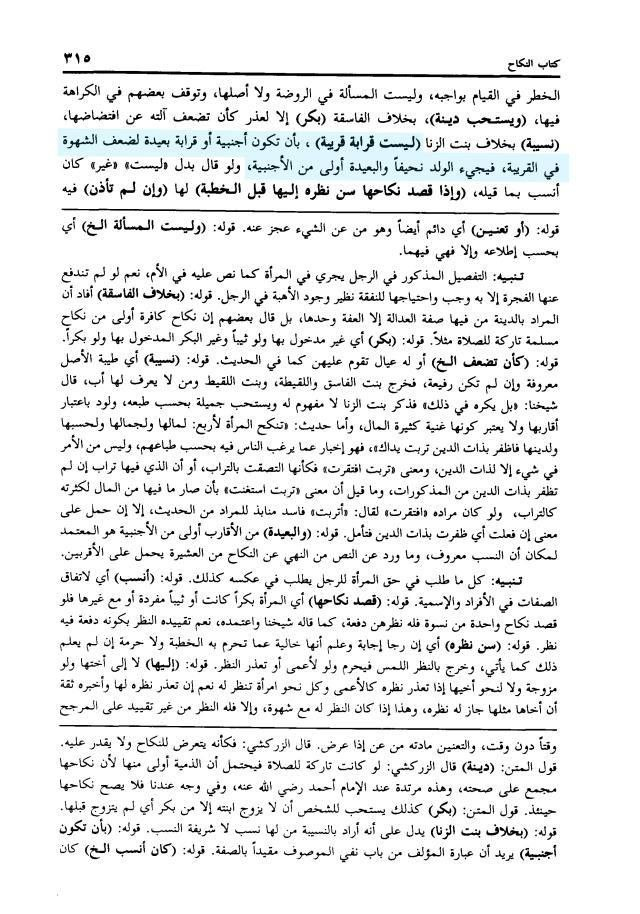 كتاب النكاح ٣١٥
الخطر في القيام بواجبه، وليست المسألة في الروضة ولا أصلها، وتوقف بعضهم في الكراهة
فيها، (ويستحب دينة)، بخلاف الفاسقة (بكر) إلا لعذر كأن تضعف آلته عن افتضاضها،
(نسيبة) بخلاف بنت الزنا (ليست قرابة قريبة) ، بأن تكون أجنبية أو قرابة بعيدة لضعف الشهوة
في القريبة، فيجيء الولد نحيفاً والبعيدة أولى من الأجنبية، ولو قال بدل «ليست» «غير» كان
أنسب بما قبله، (وإذا قصد نكاحها سن نظره إليها قبل الخطبة) لها (وإن لم تأذن) فيه
قوله: (أو تعنين) أي دائم أيضاً وهو من عن الشيء عجز عنه. قوله: (وليست المسألة الخ) أي
بحسب إطلاعه وإلا فهي فيهما.
تنبيه: التفصيل المذكور في الرجل يجري في المرأة كما نص عليه في الأم، نعم لو لم تندفع
عنها الفجرة إلا به وجب واحتياجها للنفقة نظير وجود الأهبة في الرجل. قوله: (بخلاف الفاسقة) أفاد أن
المراد بالدينة من فيها صفة العدالة إلا العفة وحدها، بل قال بعضهم إن نكاح كافرة أولى من نكاح
مسلمة تاركة للصلاة مثلاً. قوله: (بكر) أي غير مدخول بها ولو ثيباً وغير البكر المدخول بها ولو بكراً.
قوله: (كأن تضعف الخ) أو له عيال تقوم عليهن كما في الحديث. قوله: (نسيبة) أي طيبة الأصل
معروفة وإن لم تكن رفيعة، فخرج بنت الفاسق واللقيطة، وبنت اللقيط ومن لا يعرف لها أب، قال
شيخنا: «بل يكره في ذلك» فذكر بنت الزنا لا مفهوم له ويستحب جميلة بحسب طبعه، ولود باعتبار
أقاربها ولا يعتبر كونها غنية كثيرة المال، وأما حديث: «تنكح المرأة لأربع: لمالها ولجمالها ولحسبها
ولدينها فاظفر بذات الدين تربت يداك»، فهو إخبار عما يرغب الناس فيه بحسب طباعهم، وليس من الأمر
في شيء إلا لذات الدين، ومعنى «تربت افتقرت» فكأنها التصقت بالتراب، أو أن الذي فيها تراب إن لم
تظفر بذات الدين من المذكورات، وما قيل أن معنى «تربت استغنت» بأن صار ما فيها من المال لكثرته
كالتراب، ولو كان مراده «افتقرت» لقال: «أتربت» فاسد منابذ للمراد من الحديث، إلا إن حمل على
معنى إن فعلت أي ظفرت بذات الدين فتأمل. قوله: (والبعيدة) من الأقارب أولى من الأجنبية هو المعتمد
لمكان أن النسب معروف، وما ورد عن النص من النهي عن النكاح من العشيرة يحمل على الأقربين.
تنبيه: كل ما طلب في حق المرأة للرجل يطلب في عكسه كذلك. قوله: (أنسب) أي لاتفاق
الصفات في الأفراد والإسمية. قوله: (قصد نكاحها) أي المرأة بكراً كانت أو ثيباً مفردة أو مع غيرها فلو
قصد نكاح واحدة من نسوة فله نظرهن دفعة، كما قاله شيخنا واعتمده، نعم تقييده النظر بكونه دفعة فيه
نظر. قوله: (سن نظره) أي إن رجا إجابة وعلم أنها خالية عما تحرم به الخطبة ولا حرمة إن لم يعلم
ذلك كما يأتي، وخرج بالنظر اللمس فيحرم ولو لأعمى أو تعذر النظر. قوله: (إليها) لا إلى أختها ولو
مزوجة ولا لنحو أخيها إذا تعذر نظره كالأعمى وكل نحو امرأة تنظر له نعم إن تعذر نظره لها وأخبره ثقة
أن أخاها مثلها جاز له نظره، وهذا إذا كان النظر له مع شهوة، وإلا فله النظر من غير تقييد على المرجح
وقتاً دون وقت، والتعنين مادته من عن إذا عرض. قال الزركشي: فكأنه يتعرض للنكاح ولا يقدر عليه.
قول المتن: (دينة) قال الزركشي: لو كانت تاركة للصلاة فيحتمل أن الذمية أولى منها لأن نكاحها
مجمع على صحته، وهذه مرتدة عند الإمام أحمد رضي الله عنه، وفي وجه عندنا فلا يصح نكاحها
حينئذ. قول المتن: (بكر) كذلك يستحب للشخص أن لا يزوج ابنته إلا من بكر أي لم يتزوج قبلها.
قوله: (بخلاف بنت الزنا) يدل على أنه أراد بالنسيبة من لها نسب لا شريفة النسب. قوله: (بأن تكون
أجنبية) يريد أن عبارة المؤلف من باب نفي الموصوف مقيداً بالصفة. قوله: (كان أنسب الخ) كان